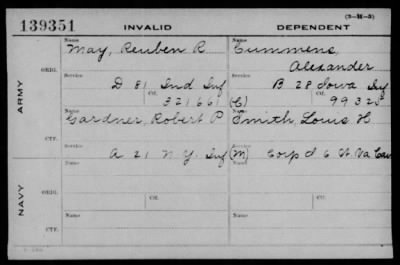 (3-H-3)
139351 INVALID DEPENDENT
ARMY
ORIG.
Name
May, Reuben R
Service
D 81 Ind Inf
Of.
321661
Name
Cummens,
Alexander
Service
B 28 Iowa Inf
Of.
(C) 99325
CTF.
Name
Gardner, Robert P
Service
A 21 N.Y. Inf
Name
Smith, Louis H
Service
(M) Corp d 6 W. Va Cav
NAVY
ORIG.
Name
Service
Of.
Name
Service
Of.
CTF.
Name
Name